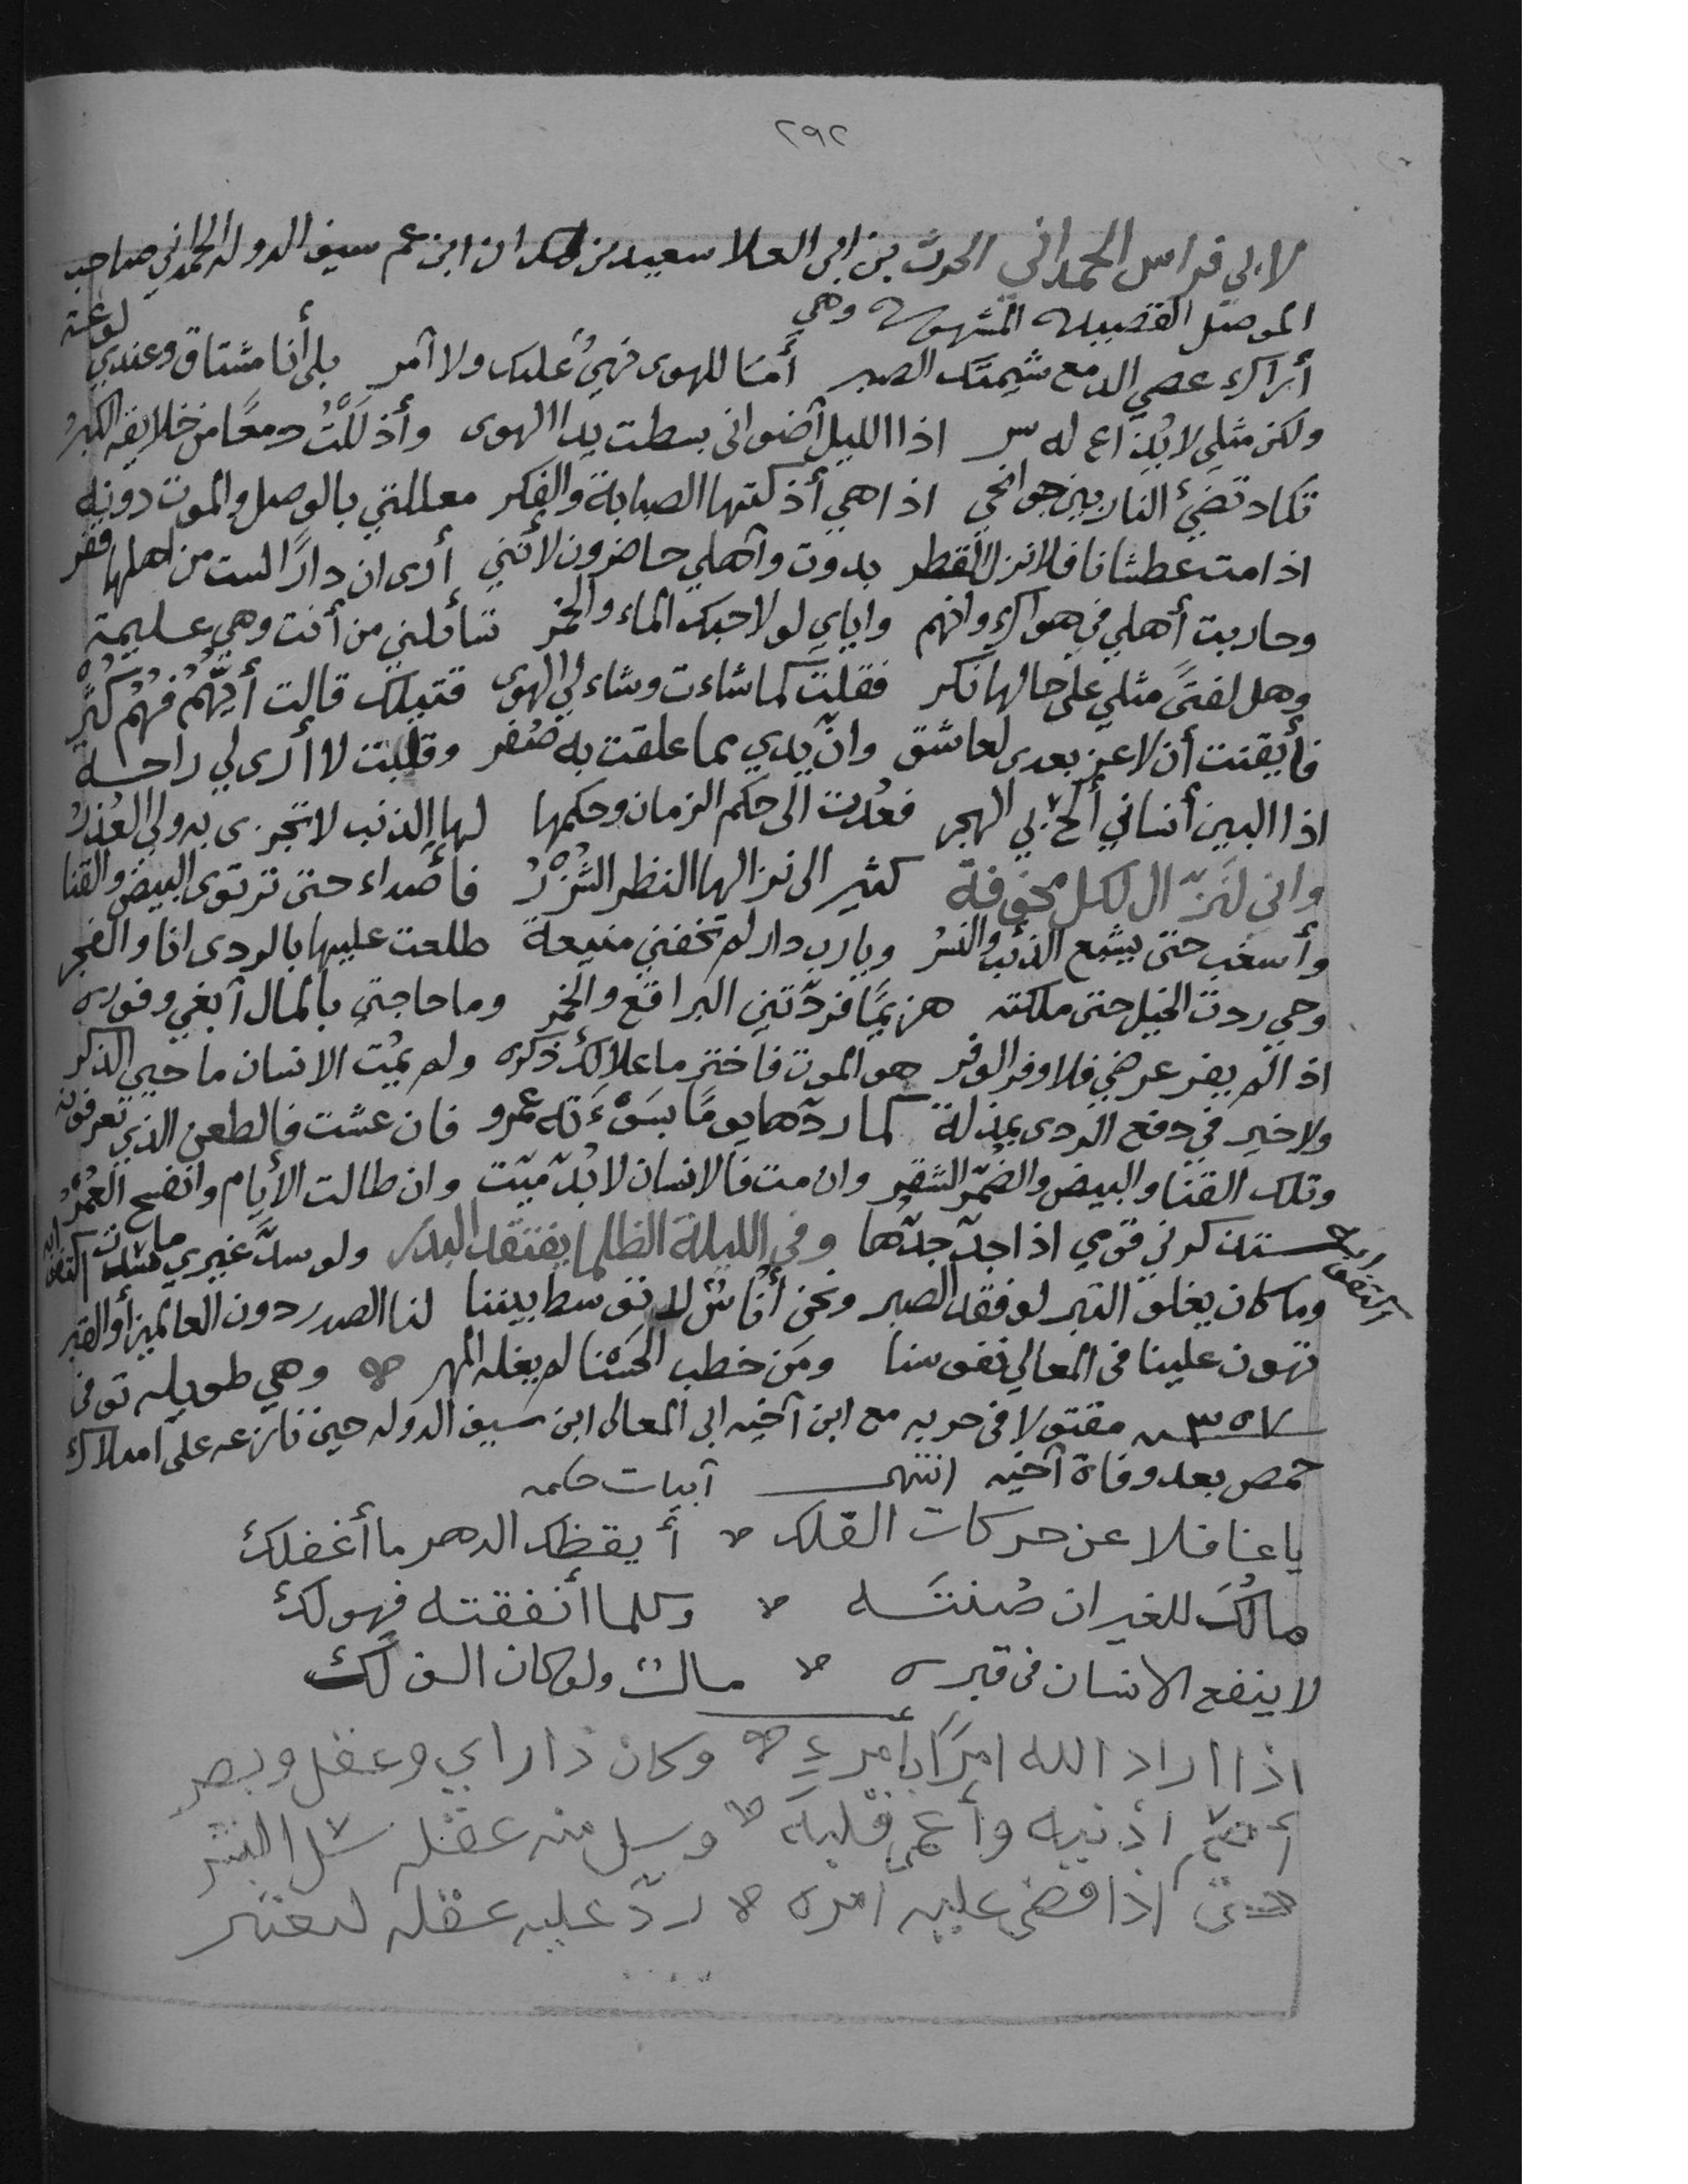 ٢٩٢
لابي فراس الحمداني الحرث بن ابى العلا سعيد بن حمدان ابن عم سيف الدوله الحمداني صاحب
الموصل القصيده المشهوره وهي
أراك عصي الدمع شيمتك الصبر أمَا للهوى نهيٌ عليك ولا آمر بلى أنا مشتاق وعندي لوعة
ولكن مثلي لا يُذاع له سر اذا الليل أضواني بسطت يد الهوى وأذلَلْتُ دمعًا من خلايقه الكبرُ
تكاد تضئ النار بين جوانحي اذا هي أذكتها الصبابة والفكر معللتي بالوصل والموت دونه
اذا مت عطشانا فلا نزل القطر بدوت وأهلي حاضرون لأنني أرى ان دارًا لست من اهلها قفر
وحاربت أهلي في هواك وانهم واياي لولا حبك الماء والخمر تسألني من أنت وهي عليمة
وهل لفتىً مثلي على حالها نكر فقلت كما شاءت وشاء لي الهوى قتيلك قالت أيّهُم فهُم كُثْرُ
فأيقنت أن لا عز بعدى لعاشق وانّ يدي مما علقت به صُفر وقلبت لا أرى لي راحة
اذا البين أنساني ألحّ بي الهجر فعُدت الى حكم الزمان وحكمها لها الذنب لا تجزى به ولي العُذرُ
وانى لنزّال لكل مخوفة كثير الى نزالها النظر الشزْرُ فأصداء حتى ترتوى البيض والقنا
وأسغب حتى يشبع الذئب والنسر ويا رب دار لم تخفني منيعة طلعت عليها بالردى انا والفجر
وحي رددت الخيل حتى ملكته هزيمًا فردّتني البراقع والخمر وما حاجتي بالمال أبغي وفوره
اذا لم يفر عرضي فلا وفر الوفر هو الموت فاختر ما علا لك ذكره ولم يمُت الانسان ما حيي الذكر
ولا خير في دفع الردى بمذلة كما ردّها يومًا بسَوْءَته عمرو فان عشت فالطعن الذي تعرفونه
وتلك القنا والبيض والضُمّر الشقر وان مت فالانسان لا بُدّ ميّت وان طالت الأيام وانفسح العُمْرُ
ستذكرني قومي اذا جدّ جدّها وفي الليلة الظلما يفتقد البدر ولو سدّ غيري ما سددت اكتفوا به
وما كان يغلو التبر لو فقد الصبر ونحن أُناسٌ لا توسط بيننا لنا الصدر دون العالمين أو القبر
تهون علينا فى المعالي نفوسنا ومَن خطب الحَسْنا لم يغله المهر وهي طويله توفى
٣٥٧ مقتولا فى حربه مع ابن أخيه ابى المعالى ابن سيف الدوله حين نازعه على املاك
حمص بعد وفاة أخيه انتهى أبيات حكمه
ياغافلا عن حركات الفلك أيقظك الدهر ما أغفلك
مالُكَ للغير ان صُنتَه وكلما أنفقته فهو لك
لا ينفع الانسان فى قبره مالٌ ولو كان الف لك
اذا اراد الله امرًا بأمرءٍ وكان ذا راي وعقل وبصر
أصم اذنيه وأعمى قلبه وسل منه عقله سل الشعر
حتى اذا قضى عليه امره ردّ عليه عقله ليعتبر